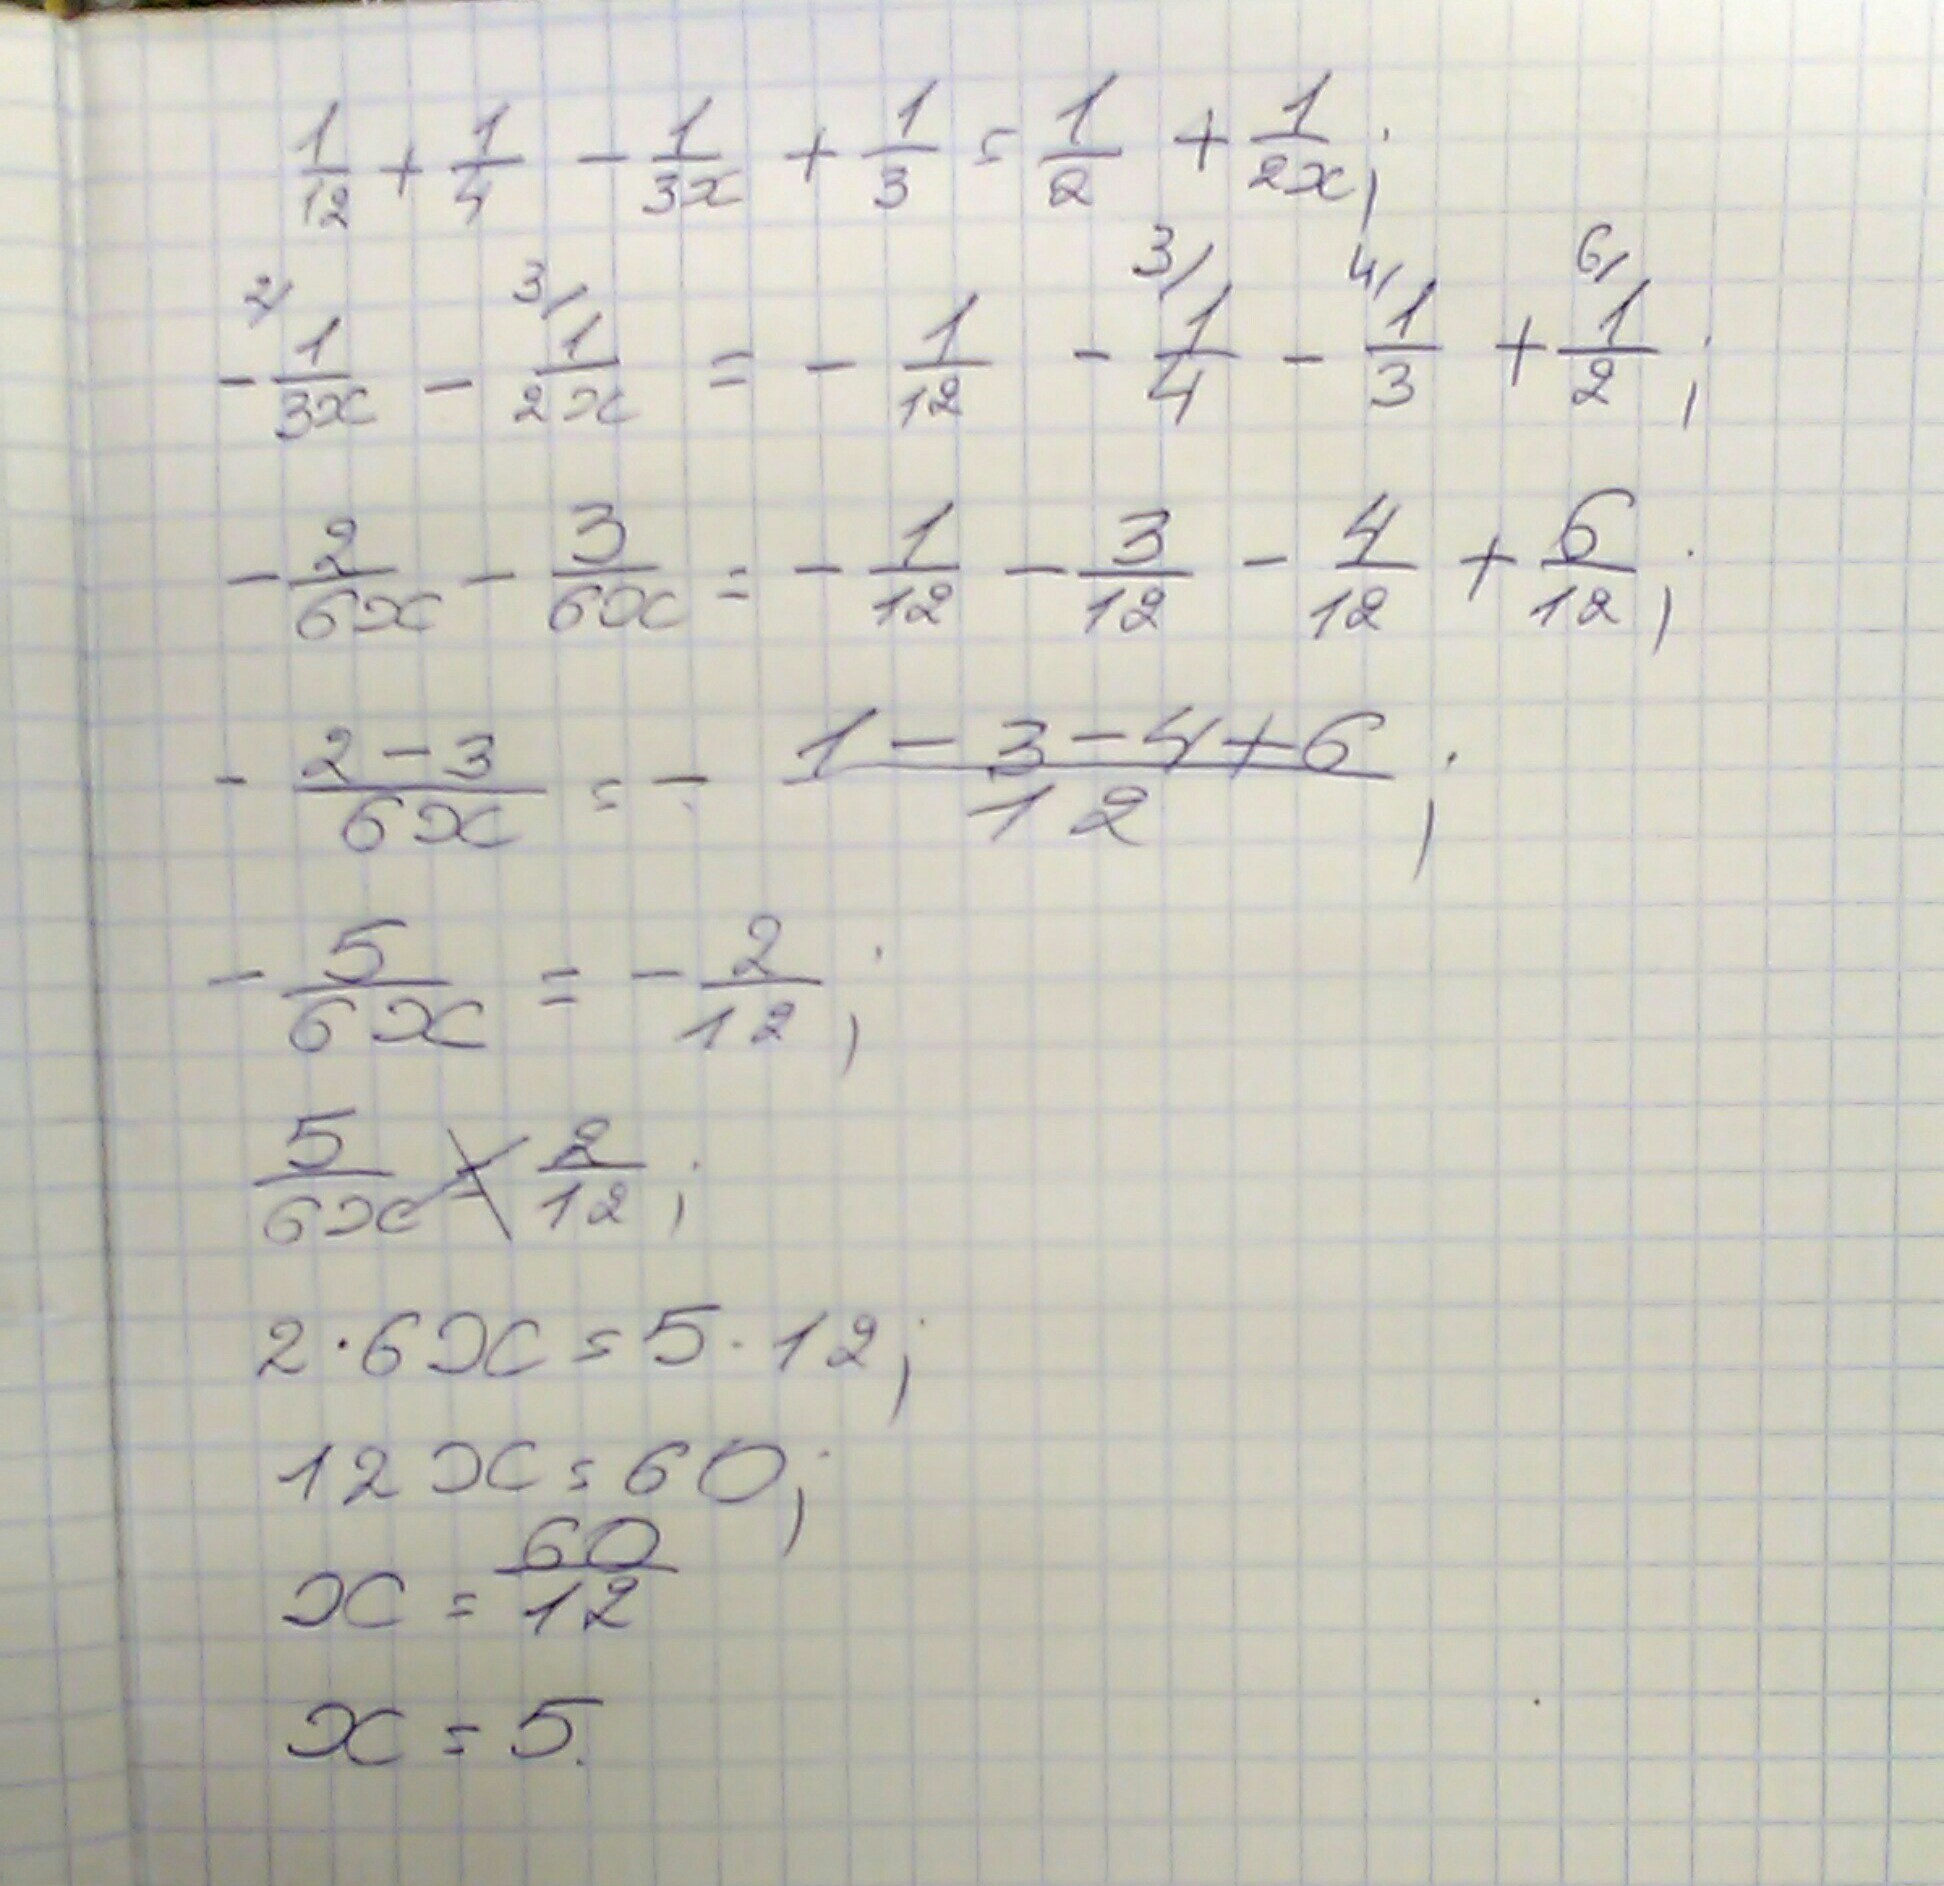 1/12 + 1/4 - 1/3x + 1/3 = 1/2 + 1/2x;
2/ 3/ 3/ 4/ 6/
- 1/3x - 1/2x = - 1/12 - 1/4 - 1/3 + 1/2;
- 2/6x - 3/6x = - 1/12 - 3/12 - 4/12 + 6/12;
- (2-3)/6x = - (1-3-4+6)/12;
- 5/6x = - 2/12;
5/6x = 2/12;
2·6x = 5·12;
12x = 60;
x = 60/12
x = 5.